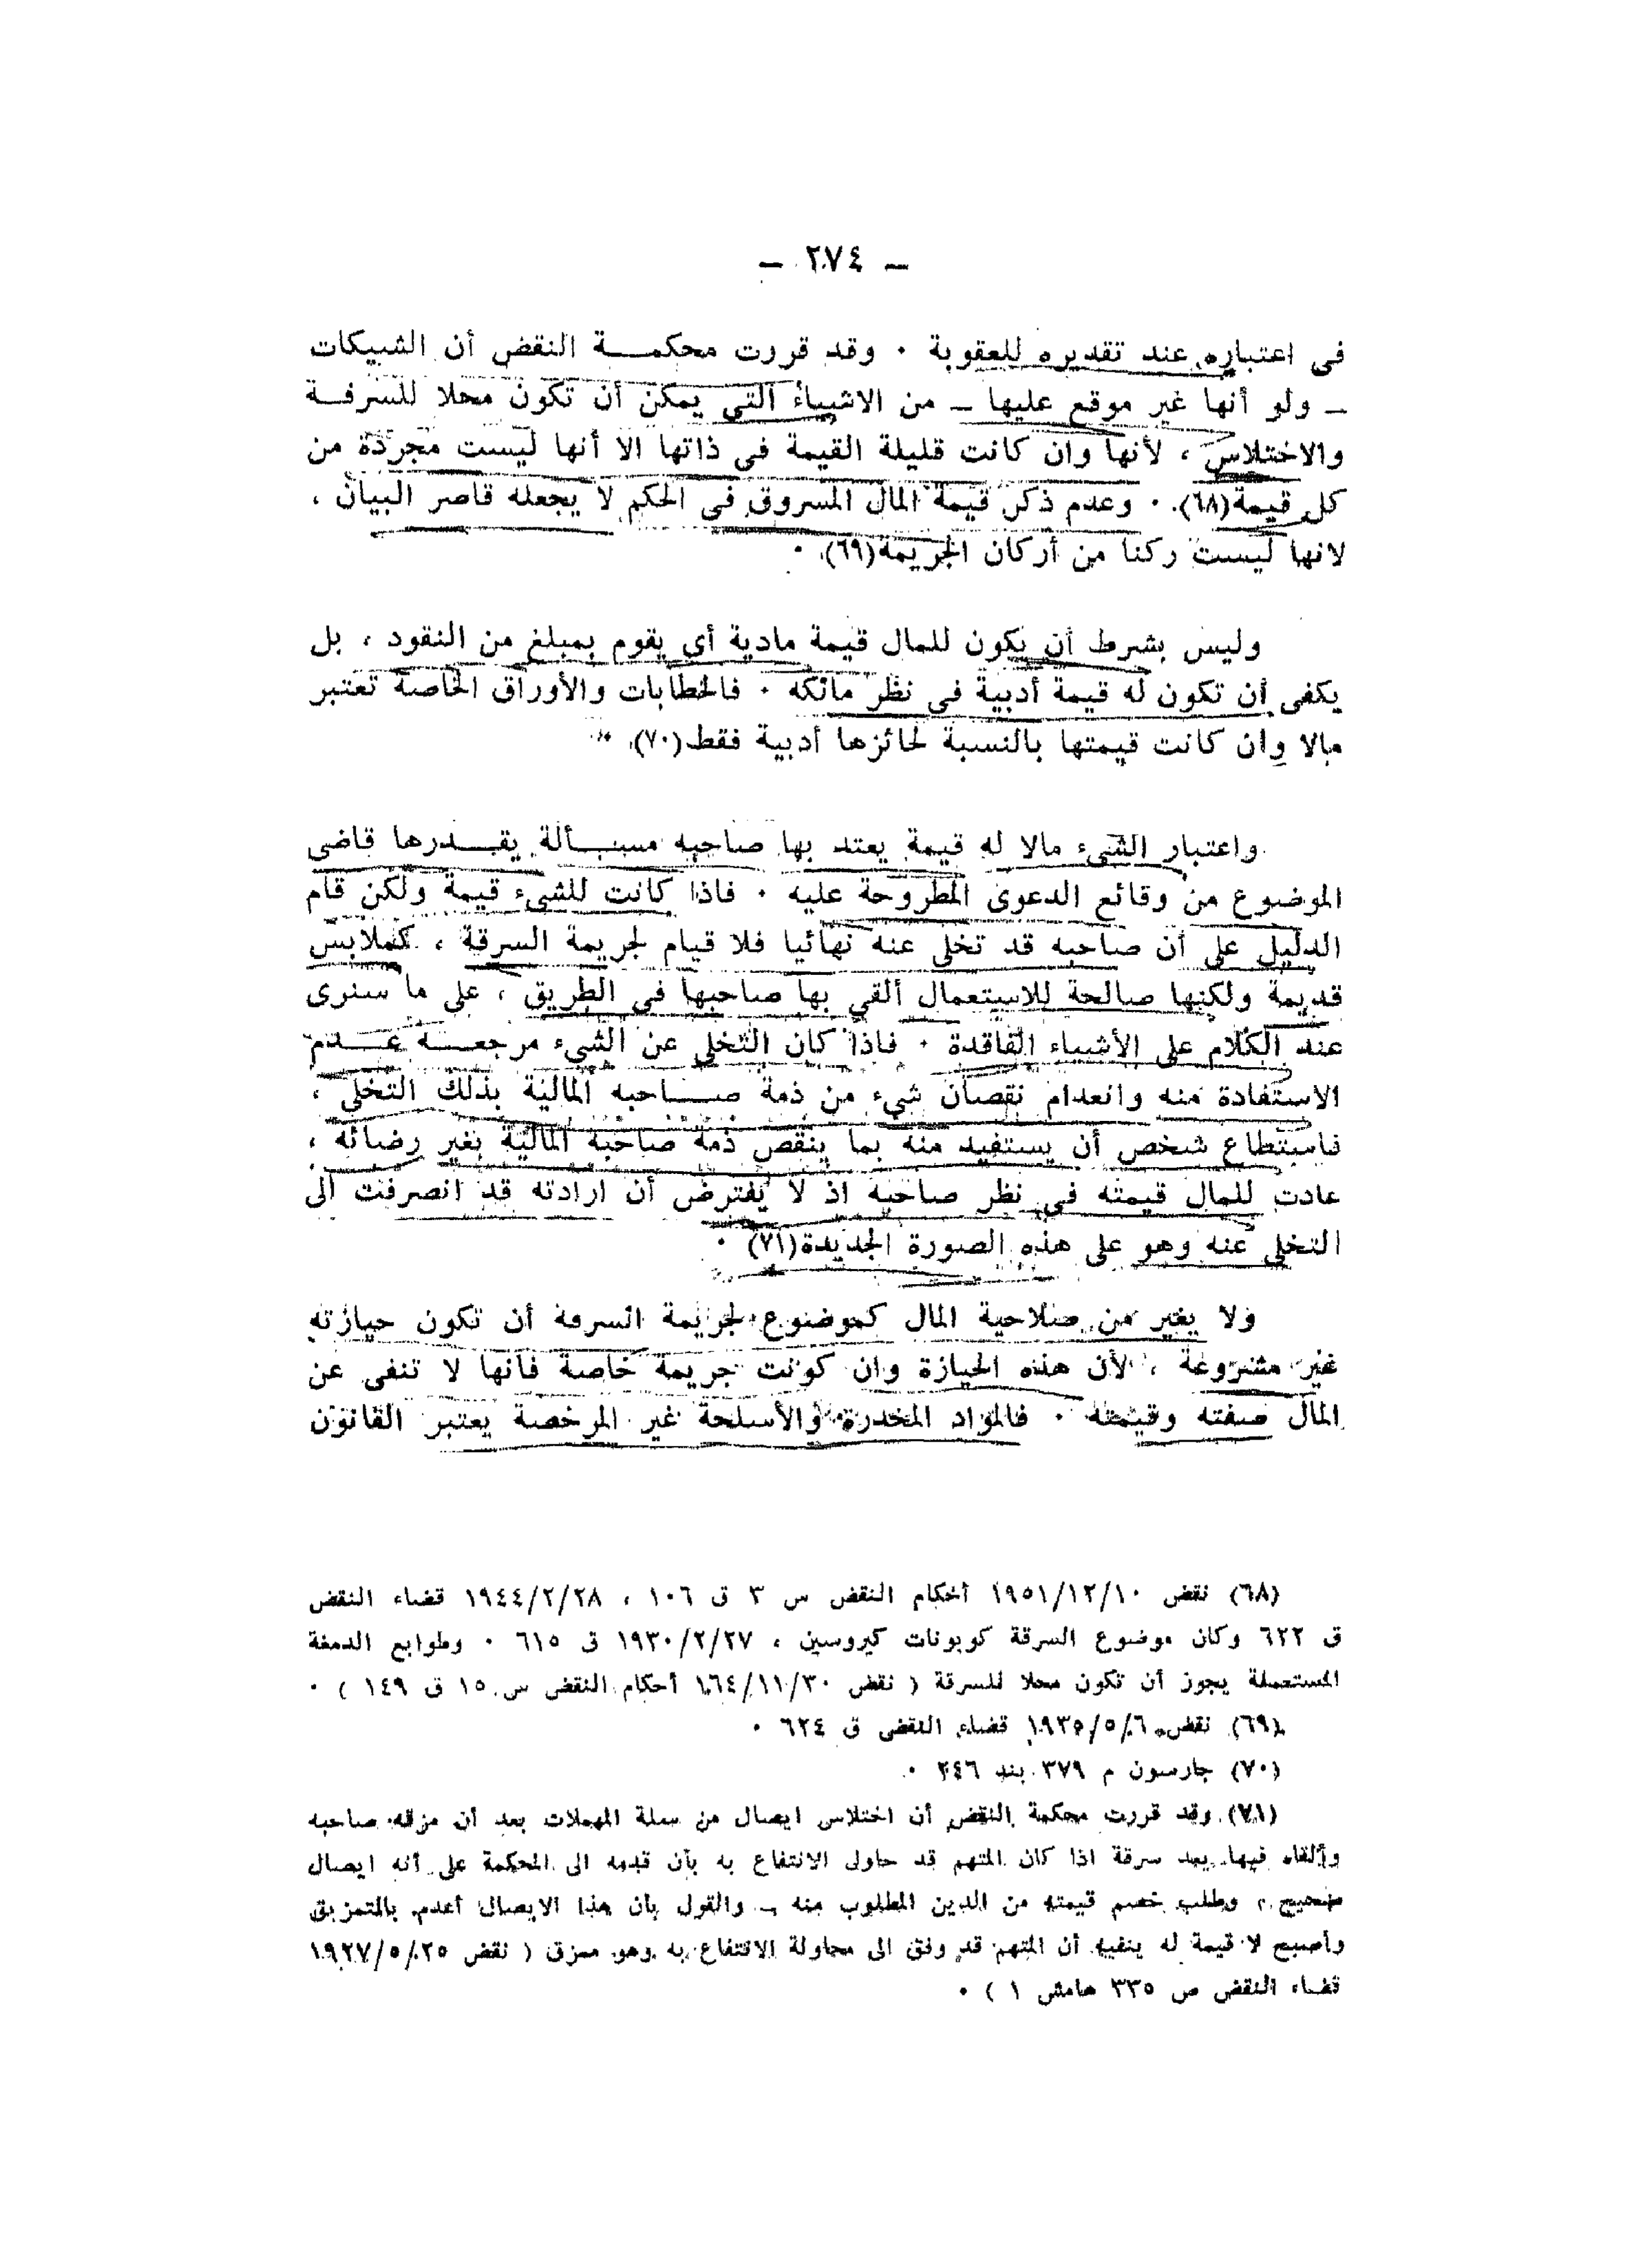 — ٢٧٤ —
فى اعتباره عند تقديره للعقوبة ٠ وقد قررت محكمة النقض أن الشيكات
— ولو أنها غير موقع عليها — من الاشياء التى يمكن أن تكون محلا للسرقة
والاختلاس ، لأنها وان كانت قليلة القيمة فى ذاتها الا أنها ليست مجردة من
كل قيمة(٦٨) ٠ وعدم ذكر قيمة المال المسروق فى الحكم لا يجعله قاصر البيان ،
لانها ليست ركنا من أركان الجريمة(٦٩) ٠
وليس بشرط أن يكون للمال قيمة مادية أى يقوم بمبلغ من النقود ، بل
يكفى أن تكون له قيمة أدبية فى نظر مالكه ٠ فالخطابات والأوراق الخاصة تعتبر
مالا وان كانت قيمتها بالنسبة لحائزها أدبية فقط(٧٠) ٠
واعتبار الشىء مالا له قيمة يعتد بها صاحبه مسألة يقدرها قاضى
الموضوع من وقائع الدعوى المطروحة عليه ٠ فاذا كانت للشىء قيمة ولكن قام
الدليل على أن صاحبه قد تخلى عنه نهائيا فلا قيام لجريمة السرقة ، كملابس
قديمة ولكنها صالحة للاستعمال ألقى بها صاحبها فى الطريق ، على ما سنرى
عند الكلام على الأشياء الفاقدة ٠ فاذا كان التخلى عن الشىء مرجعه عدم
الاستفادة منه وانعدام نقصان شىء من ذمة صاحبه المالية بذلك التخلى ،
فاستطاع شخص أن يستفيد منه بما ينقص ذمة صاحبه المالية بغير رضائه ،
عادت للمال قيمته فى نظر صاحبه اذ لا يفترض أن ارادته قد انصرفت الى
التخلى عنه وهو على هذه الصورة الجديدة(٧١) ٠
ولا يغير من صلاحية المال كموضوع لجريمة السرقة أن تكون حيازته
غير مشروعة ، لأن هذه الحيازة وان كونت جريمة خاصة فانها لا تنفى عن
المال صفته وقيمته ٠ فالمواد المخدرة والأسلحة غير المرخصة يعتبر القانون
(٦٨) نقض ١٩٥١/١٢/١٠ أحكام النقض س ٣ ق ١٠٦ ، ١٩٤٤/٢/٢٨ قضاء النقض
ق ٦٢٢ وكان موضوع السرقة كوبونات كيروسين ، ١٩٣٠/٢/٢٧ ق ٦١٥ ٠ وطوابع الدمغة
المستعملة يجوز أن تكون محلا للسرقة ( نقض ١٦٤/١١/٣٠ أحكام النقض س ١٥ ق ١٤٩ ) ٠
(٦٩) نقض ١٩٣٥/٥/٦ قضاء النقض ق ٦٢٤ ٠
(٧٠) جارسون م ٣٧٩ بند ٢٤٦ ٠
(٧١) وقد قررت محكمة النقض أن اختلاس ايصال من سلة المهملات بعد أن مزقه صاحبه
وألقاه فيها يعد سرقة اذا كان المتهم قد حاول الانتفاع به بأن قدمه الى المحكمة على أنه ايصال
صحيح ، وطلب خصم قيمته من الدين المطلوب منه — والقول بأن هذا الايصال أعدم بالتمزيق
وأصبح لا قيمة له ينفيه أن المتهم قد وفق الى محاولة الانتفاع به وهو ممزق ( نقض ١٩٢٧/٥/٢٥
قضاء النقض ص ٣٣٥ هامش ١ ) ٠